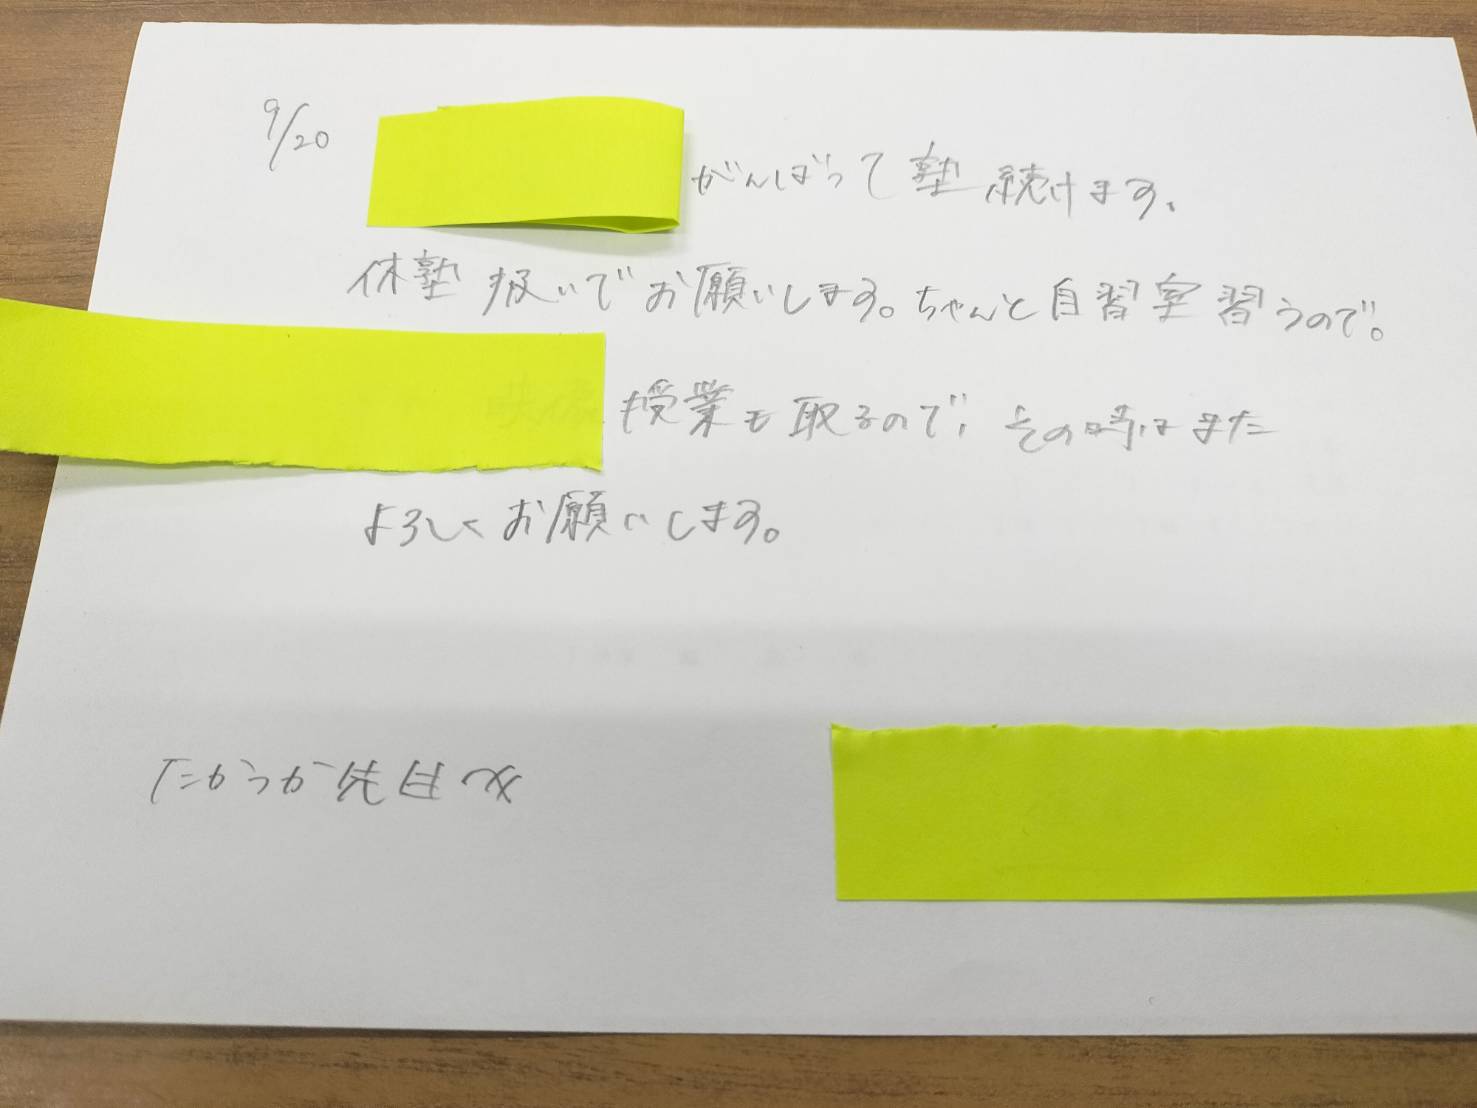 9/20 がんばって塾続けます、
休塾扱いでお願いします。ちゃんと自習室習うので。
授業も取るので、その時はまた
よろしくお願いします。
たかつか先生へ